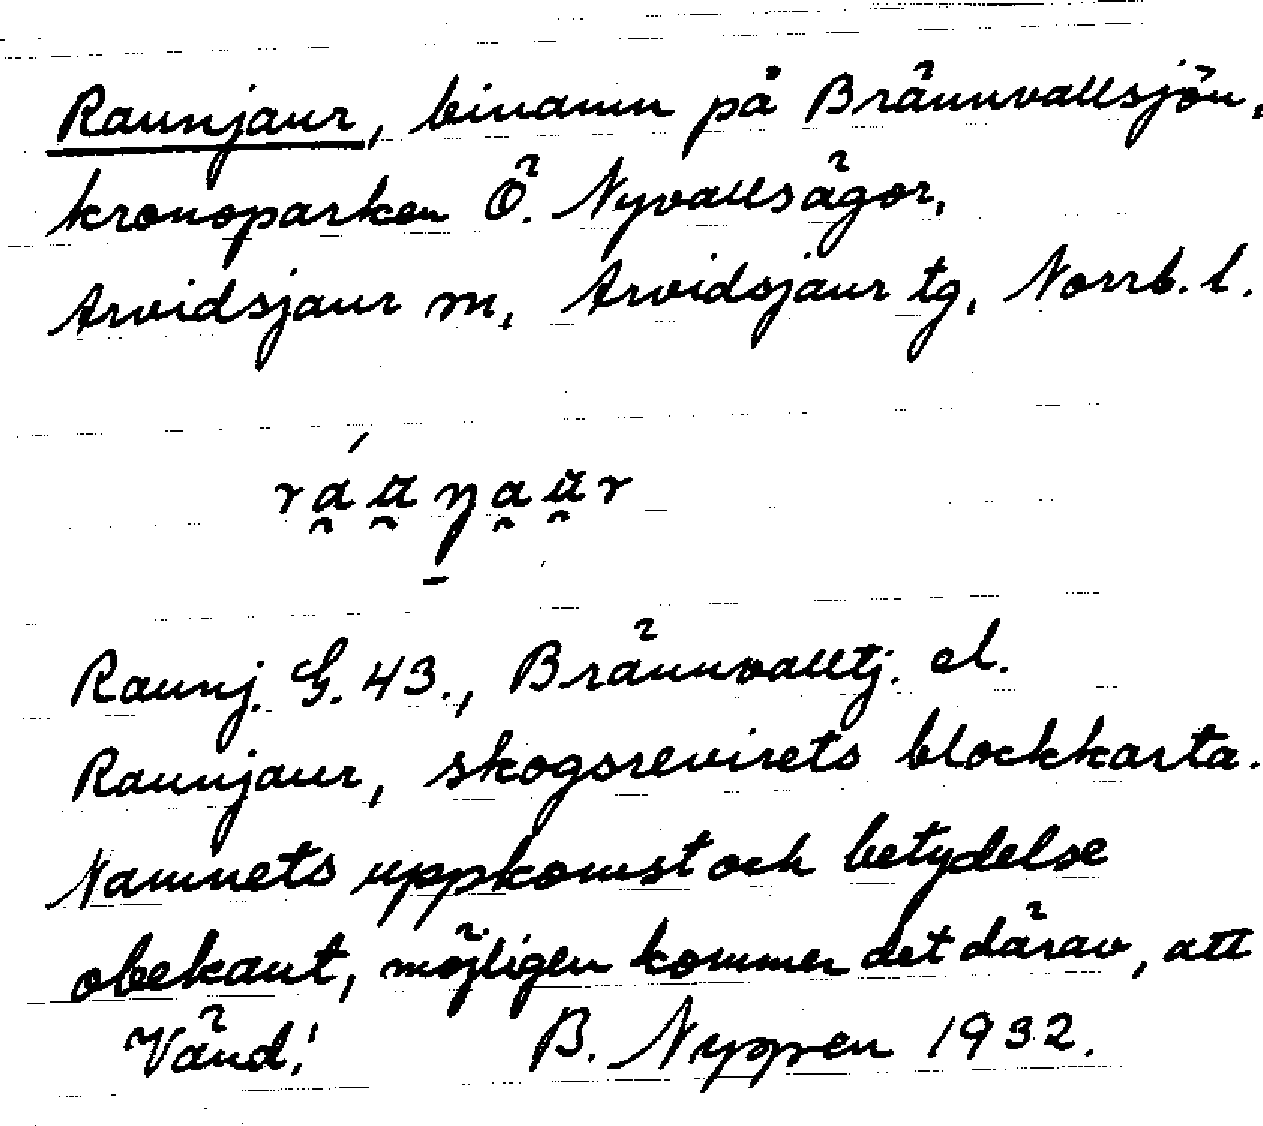 Raunjaur, binamn på Brännvallsjön,
kronoparken Ö. Nyvallsägor,
Arvidsjaur m, Arvidsjaur tg, Norrb. l.
Raunj. G. 43., Brännvalltj. el.
Raunjaur, skogsrevirets blockkarta.
Namnets uppkomst och betydelse
obekant, möjligen kommer det därav, att
Vänd! B. Nyppen 1932.